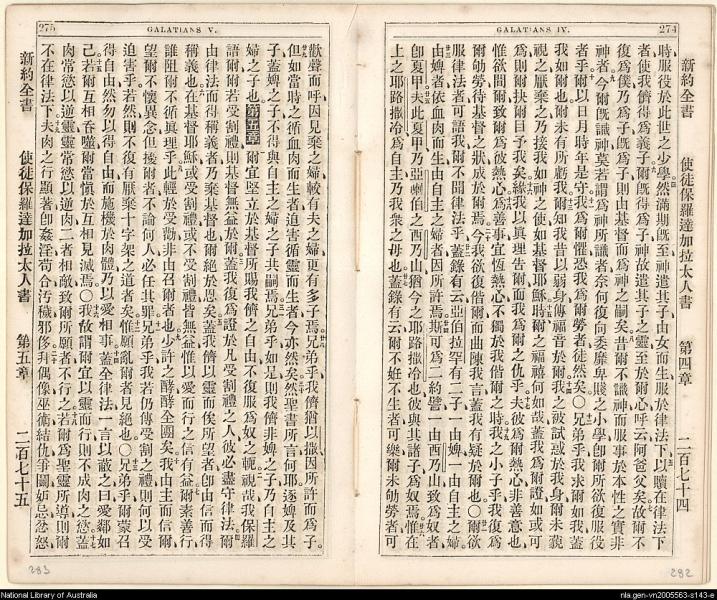 274
GALATIANS IV.
新約全書 使徒保羅達加拉太人書 第四章 二百七十四
時服役於此世之小學然滿期旣至神遣其子由女而生服於律法下以贖在律法下
者使我儕得爲義子爾旣得爲子神故遣其子之靈至於爾心呼云阿爸父矣故爾不
復爲僕乃爲子旣爲子則由基督而爲神之嗣矣昔爾不識神而服事於本性之實非
神者今爾旣識神莫若謂爲神所識者奈何復向委靡卑賤之小學卽爾所欲復服役
者乎爾以日月時年是守我爲爾懼恐我爲爾勞者徒然矣〇兄弟乎我求爾如我蓋
我如爾也爾未有所虧我爾知我昔以弱身傳福音於爾我之被試惑於我身爾未藐
視之厭棄之乃接我如神之使如基督耶穌時爾之福禧何如哉蓋我爲爾證如或可
爲則爾抉爾目予我矣緣我以眞理告爾而我爲爾之仇乎夫彼爲爾熱心非善意也
惟欲間爾致爾爲彼熱心爲善事宜恆熱心不獨於我偕爾之時我之小子乎我復爲
爾劬勞待基督之狀成於爾焉今我欲復偕爾而曲陳我言蓋我有疑於爾也〇爾欲
服律法者可語我爾不聞律法乎蓋錄有云亞伯拉罕有二子一由婢一由自主之婦
由婢者依血肉而生由自主之婦者因所許焉斯可爲二約譬一由西乃山致爲奴者
卽夏甲夫此夏甲乃亞喇伯之西乃山也猶今之耶路撒冷也彼與其諸子爲奴焉惟在
上之耶路撒冷爲自主乃我衆之母也蓋錄有云爾不妊不生者可樂爾未劬勞者可
282
275
GALATIANS V.
歡聲而呼因見棄之婦較有夫之婦更有多子焉兄弟乎我儕猶以撒因所許而爲子
但如當時之循血肉而生者迫害循靈而生者今亦然矣然聖書所言何耶逐婢及其
子蓋婢之子不得與自主之婦之子共嗣焉兄弟乎如是則我儕非婢之子乃自主之
婦之子也第五章爾宜堅立於基督所賜我儕之自由不復服爲奴之軛視哉我保羅
語爾爾若受割禮則基督無益於爾蓋我復爲證於凡受割禮之人彼必盡守律法爾
由律法而得稱義者乃棄基督也爾絕於恩矣蓋我儕以靈而俟所望者卽由信而得
稱義也在基督耶穌或受割禮或不受割禮皆無益惟以愛而行之信有益爾素善行
誰阻爾不循眞理乎此輕於受勸非由召爾者也少許之酵酵全團矣我由主而信爾
望爾不懷異念但擾爾者不論何人必任其罪兄弟乎我若仍傳受割之禮則何以受
迫害乎若然則不復有厭棄十字架之道者矣惟願亂爾者見絕也〇兄弟乎爾蒙召
得自由然勿以得自由而施機於肉體乃以愛相事蓋全律法一言以蔽之曰愛鄰如
己若爾互相吞噬爾當愼於互相見滅焉〇我故謂爾宜以靈而行則不成肉之慾蓋
肉常慾以逆靈靈常慾以逆肉二者相敵致爾所願者不行之若爾爲聖靈所導則爾
不在律法下夫肉之行顯著卽姦淫苟合污穢邪侈拜偶像巫術結仇爭鬪妬忌忿怒
新約全書 使徒保羅達加拉太人書 第五章 二百七十五
283
National Library of Australia
nla.gen-vn2005563-s143-e